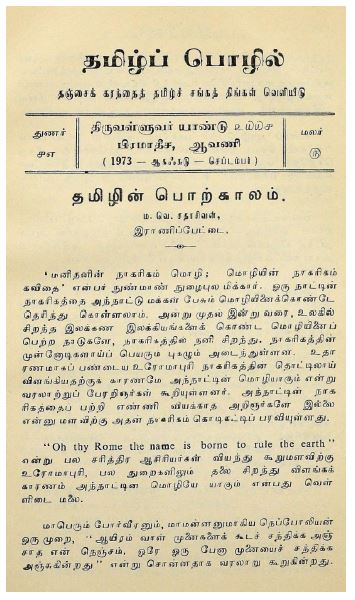 தமிழ்ப் பொழில்
தஞ்சைக் கரந்தைத் தமிழ்ச் சங்கத் திங்கள் வெளியீடு
துணர்
திருவள்ளுவர் யாண்டு
பிரமாதீச, ஆவணி
( 1973 — ஆகஸ்டு — செப்டம்பர் )
மலர்
௫
தமிழின் பொற்காலம்.
ம. வெ. சதாசிவன்,
இராணிப்பேட்டை.
'மனிதனின் நாகரிகம் மொழி; மொழியின் நாகரிகம்
கவிதை' என்பர் நுண்மாண் நுழைபுல மிக்கார். ஒரு நாட்டின்
நாகரிகத்தை அந்நாட்டு மக்கள் பேசும் மொழியினைக்கொண்டே
தெரிந்து கொள்ளலாம். அன்று முதல் இன்று வரை, உலகில்
சிறந்த இலக்கண இலக்கியங்களைக் கொண்ட மொழியினைப்
பெற்ற நாடுகளே, நாகரிகத்தில் நனி சிறந்து, நாகரிகத்தின்
முன்னோடிகளாய்ப் பெயரும் புகழும் அடைந்துள்ளன. உதா
ரணமாகப் பண்டைய உரோமாபுரி நாகரிகத்தின் தொட்டிலாய்
விளங்கியதற்குக் காரணமே அந்நாட்டின் மொழியாகும் என்று
வரலாற்றுப் பேரறிஞர்கள் கூறியுள்ளனர். அந்நாட்டின் நாக
ரிகத்தைப் பற்றி எண்ணி வியக்காத அறிஞர்களே இல்லை
என்னுமளவிற்கு அதன் நாகரிகம் கொடிகட்டிப் பரவியுள்ளது.
"Oh thy Rome the name is borne to rule the earth"
என்று பல சரித்திர ஆசிரியர்கள் வியந்து கூறுமளவிற்கு
உரோமாபுரி, பல துறைகளிலும் தலை சிறந்து விளங்கக்
காரணம் அந்நாட்டின் மொழியே யாகும் என்பது வெள்
ளிடை மலை.
மாபெரும் போர்வீரனும், மாமன்னனுமாகிய நெப்போலியன்
ஒரு முறை, "ஆயிரம் வாள் முனைகளைக் கூடச் சந்திக்க அஞ்
சாத என் நெஞ்சம், ஒரே ஒரு பேனா முனையைச் சந்திக்க
அஞ்சுகின்றது" என்று சொன்னதாக வரலாறு கூறுகின்றது.